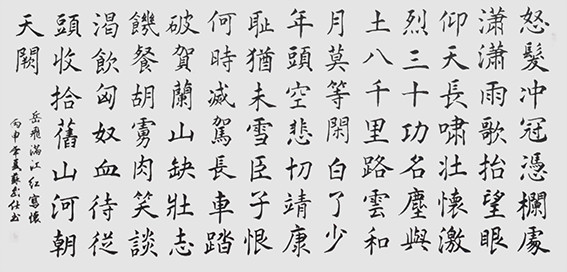 怒髮冲冠憑欄處
瀟瀟雨歇抬望眼
仰天長嘯壯懷激
烈三十功名塵與
土八千里路雲和
月莫等閑白了少
年頭空悲切靖康
耻猶未雪臣子恨
何時滅駕長車踏
破賀蘭山缺壯志
饑餐胡虜肉笑談
渴飲匈奴血待從
頭收拾舊山河朝
天闕
岳飛滿江紅寫懷
丙申年夏蘇仕书